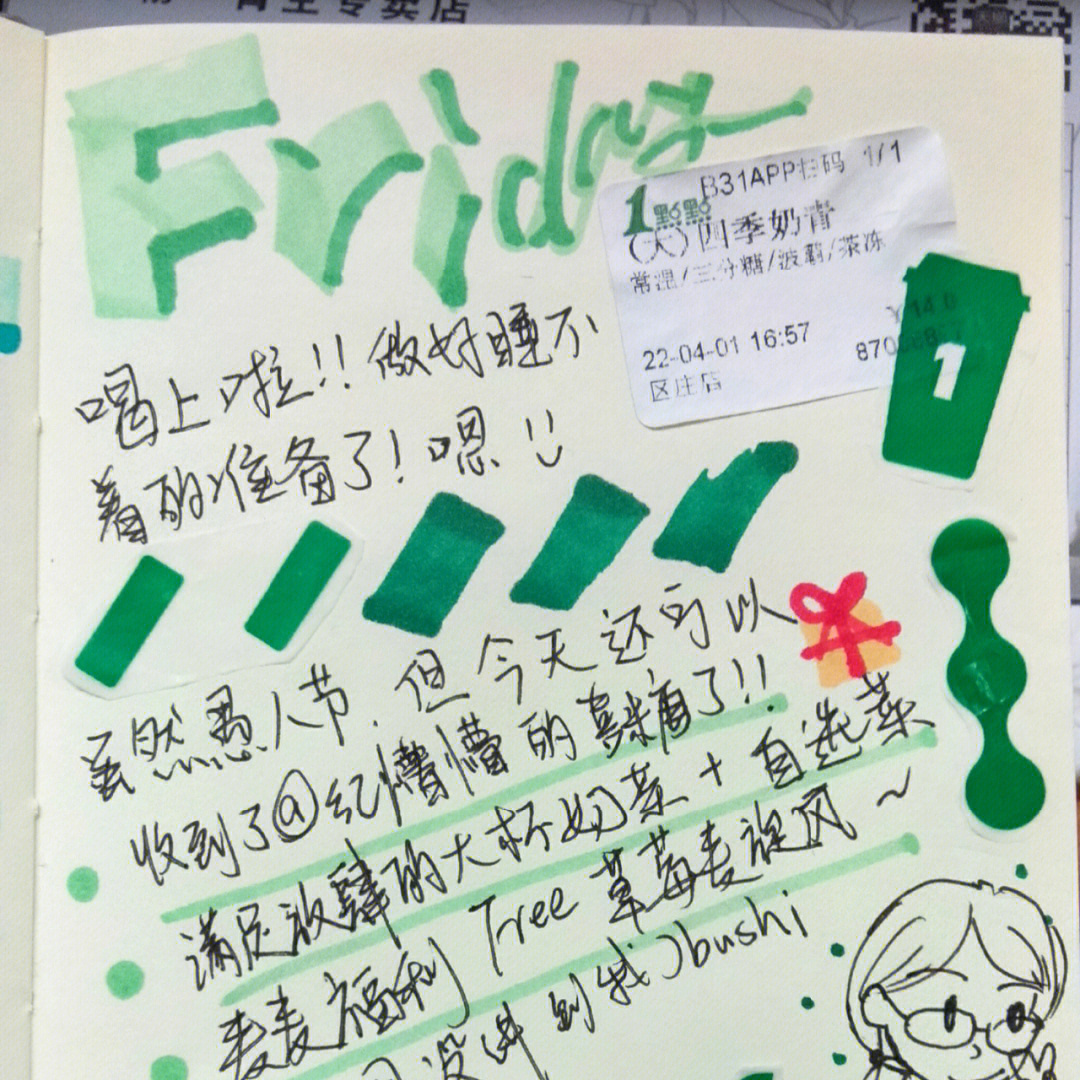 专卖店
Friday
B31APP扫码 1/1
1點點
(大)四季奶青
常温/三分糖/波霸/茶冻
¥14.0
22-04-01 16:57
区庄店
1
喝上啦!!做好睡不
着的准备了!嗯
虽然愚人节,但今天还可以
收到了@纪懵懵的喜糖了!!
满足放肆的大杯奶茶+自选菜
麦麦福利 Free 草莓麦旋风~
没 到我)bushi